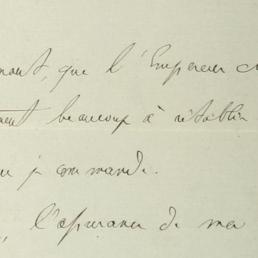 que l'Empereur
beaucoup à rétablir
je commande.
l'assurance de ma